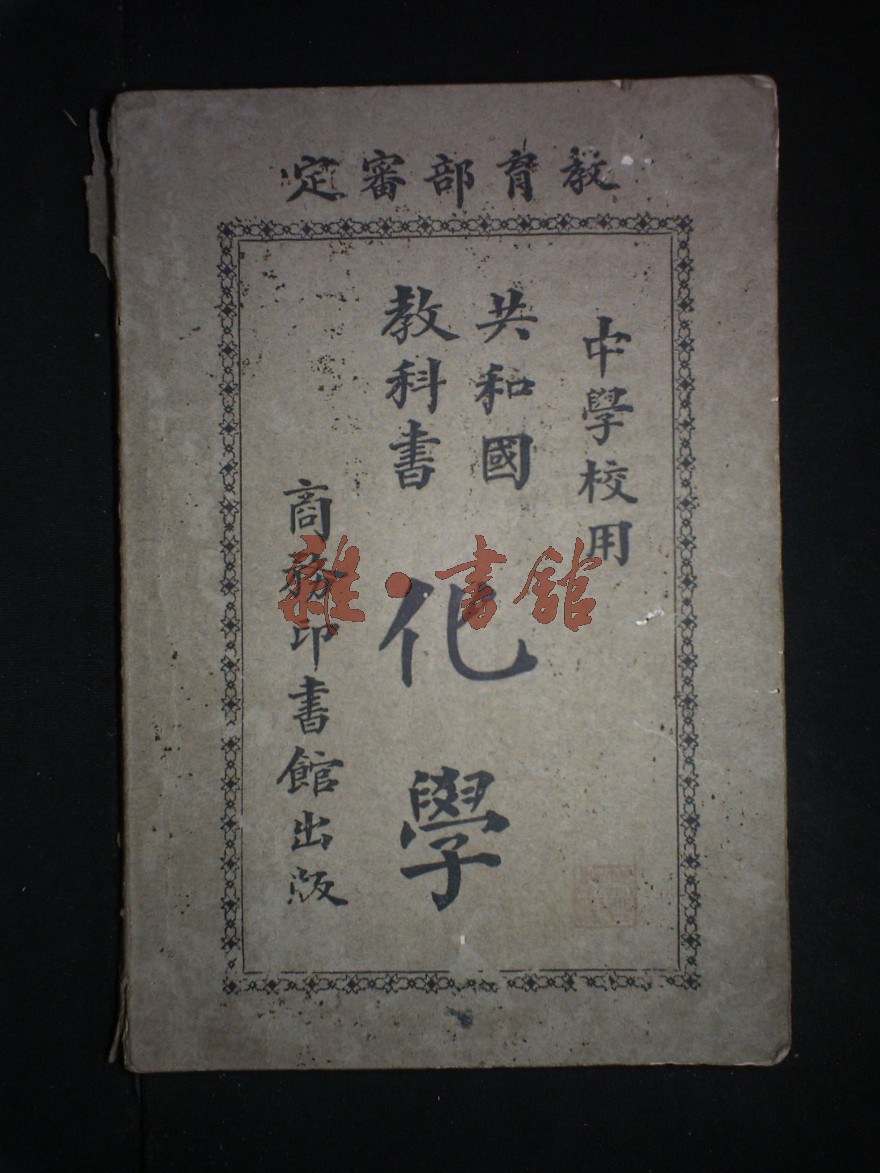 教育部審定
中學校用
共和國
教科書
化學
商務印書館出版
雜·書館